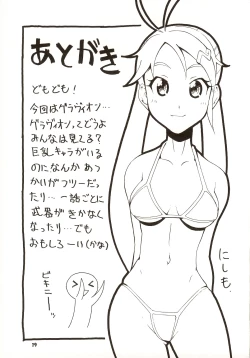 あとがき
どもども！
今回はグラヴィオン…
グラヴィオンってどうよ
みんなは見てる？
巨乳キャラがいる
のになんか あっ
かいがフツーだっ
たり…一話ごとに
武器がきかなく
なったり…でも
おもしろーい(かな)
にしも.
ビキニーッ
39